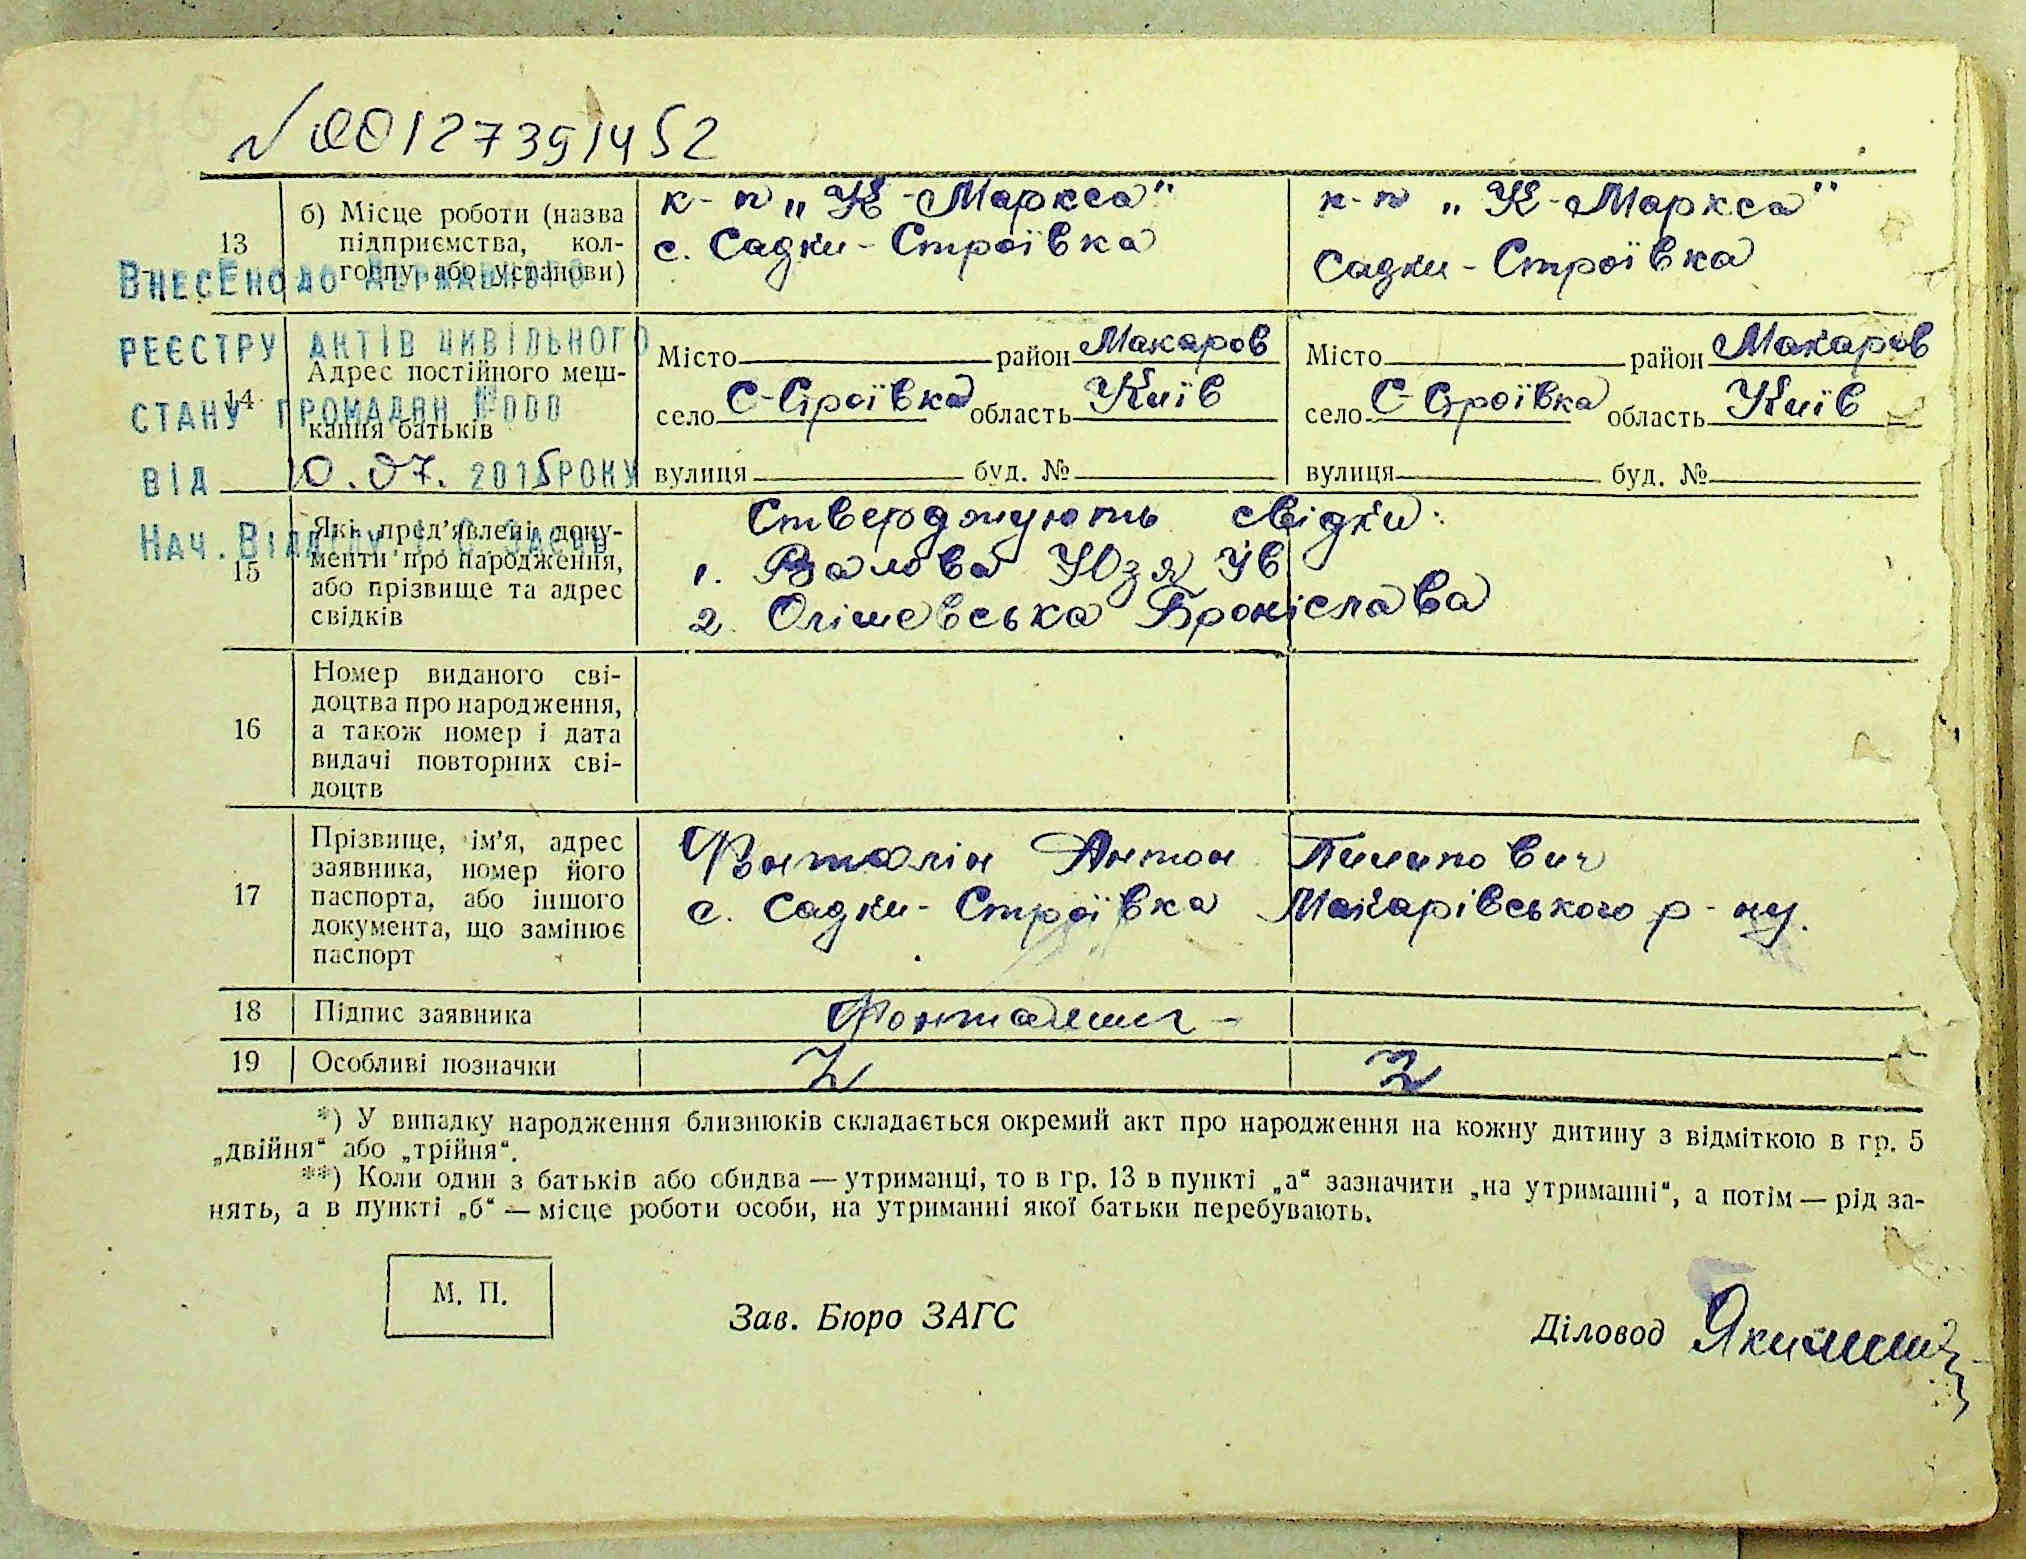 № 00127391452
13
б) Місце роботи (назва
підприємства, кол-
госпу або установи)
к-п „К-Маркса"
с. Садки-Строївка
к-п „К-Маркса"
Садки-Строївка
Внесено до Державного
реєстру актів цивільного
стану громадян
від 10.07.2015 року
Нач. Відділу
14
Адрес постійного меш-
кання батьків
Місто район Макаров
село С-Строївка область Київ
вулиця буд. №
Місто район Макаров
село С-Строївка область Київ
вулиця буд. №
15
Які пред'явлені доку-
менти про народження,
або прізвище та адрес
свідків
Стверджують свідки:
1. Валова Юзя Ів
2. Олішевська Броніслава
16
Номер виданого сві-
доцтва про народження,
а також номер і дата
видачі повторних сві-
доцтв
17
Прізвище, ім'я, адрес
заявника, номер його
паспорта, або іншого
документа, що замінює
паспорт
Фнталін Антон Пилипович
с. Садки-Строївка Макарівського р-ну.
18 Підпис заявника
19 Особливі позначки Z Z
*) У випадку народження близнюків складається окремий акт про народження на кожну дитину з відміткою в гр. 5
„двійня“ або „трійня“.
**) Коли один з батьків або обидва — утриманці, то в гр. 13 в пункті „а“ зазначити „на утриманні“, а потім — рід за-
нять, а в пункті „б“ — місце роботи особи, на утриманні якої батьки перебувають.
М. П.
Зав. Бюро ЗАГС
Діловод